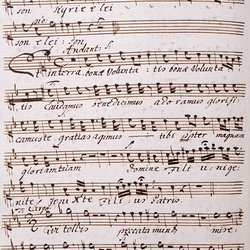 son Kyrie elei
son elei son
Andant:
in terra bonæ Volunta tis bonæ Volunta
tis Laudamus benedicimus adoramus glorifi
camus te gratias agimus tibi propter magnam
gloriam tuam Domine Fili unige
nite Jesu Xte Fili us Patris
qui tollis peccata mundi mise